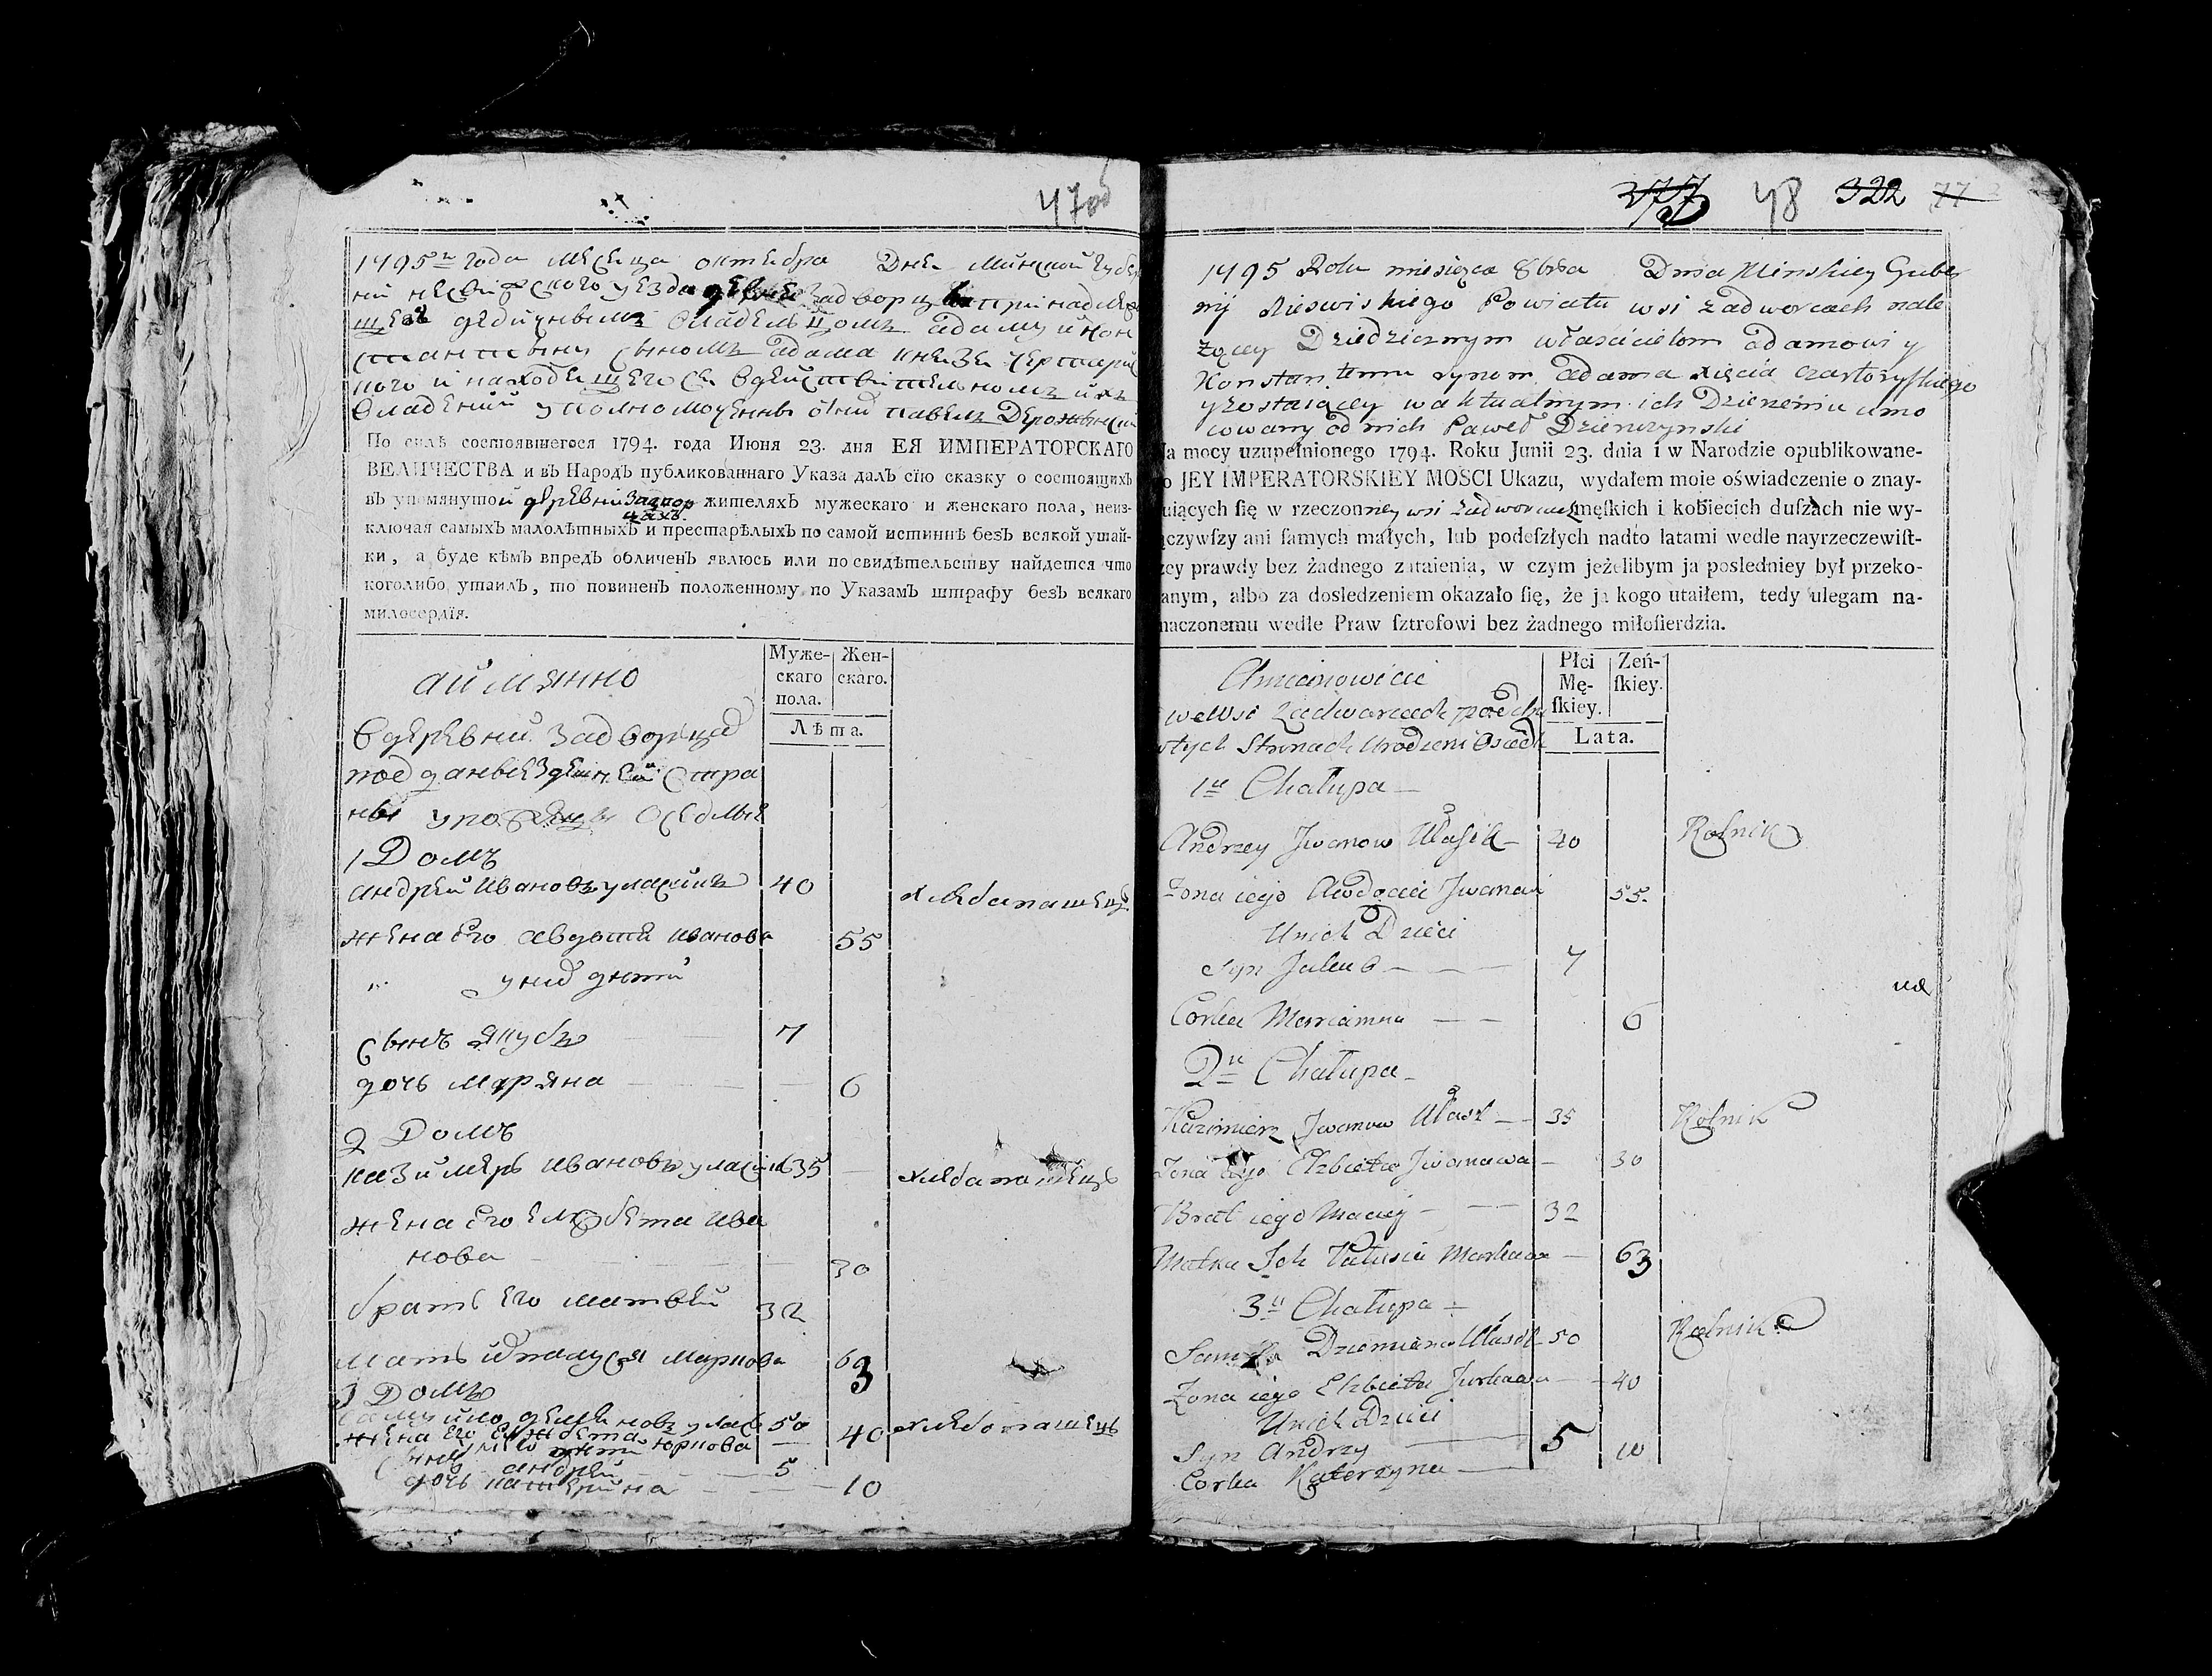 47об
1795го года месеца октебра Дня Минской губер
ний несвифского уезда задворц принадлежа
щей дедичнымъ владельцомъ адаму и кон
стантыну сыномъ адама кнезе чарторий
ского и находещегосе вдействительномъ ихъ
владении уполномоченны одних павелъ
По силѣ состоявшегося 1794. года Июня 23. дня ЕЯ ИМПЕРАТОРСКАГО
ВЕЛИЧЕСТВА и въ Народъ публикованнаго Указа далъ сїю сказку о состоящихъ
въ упомянутой деревни задвор цахъ жителяхъ мужескаго и женскаго пола, неиз-
ключая самыхъ малолѣтныхъ и престарѣлыхъ по самой истиннѣ безъ всякой утай-
ки, а буде кѣмъ впредъ обличенъ явлюсь или по свидѣтельству найдется что
коголибо утаилъ, то повиненъ положенному по Указамъ штрафу безъ всякаго
милосердїя.
аймянно
Муже-
скаго
пола.
Жен-
скаго.
Лѣта.
вдеревни задворцах
подданые здешней стра
ны уроженцы оселые
1 Домъ
андрей Ивановъ уласикъ 40 хлебапашецъ
жена его авдотя иванова 55
у них дети
сынъ якубъ 7
дочь маряна 6
2 Домъ
казимеръ ивановъ уласик 35 хлебапашецъ
жена его елжбета ива
нова 30
братъ его матвей 32
мать их талуся маркова 63
3 Домъ
самуйло демяновъ улас 50 хлебапашецъ
жена его елжбета юркова 40
у них дети
сынъ андрей 5
дочь катерина 10
377 48 322 77
1795 Roku miesięca 8bra Dnia Minskiey Guber
nij Nieswiskiego Powiatu wsi zadworcach nale
żącey Dziedzicznym właścicielom adamowi y
Konstantemu synom adama xięcia czartoryskiego
y zostaiącey w aktualnym ich Dzierżeniu umo
cowany od nich Paweł
Na mocy uzupełnionego 1794. Roku Junii 23. dnia i w Narodzie opublikowane-
go JEY IMPERATORSKIEY MOSCI Ukazu, wydałem moie oświadczenie o znay-
duiących ſię w rzeczonney wsi zadworcach męſkich i kobiecich duſzach nie wy-
łączywſzy ani ſamych małych, lub podeſzłych nadto latami wedle nayrzeczewiſt-
szey prawdy bez żadnego zataienia, w czym jeżelibym ja posledniey był przeko-
nanym, albo za dosledzeniem okazało ſię, że ja kogo utaiłem, tedy ulegam na-
znaczonemu wedle Praw ſztrofowi bez żadnego miłoſierdzia.
Amianowicie
Płci
Mę-
ſkiey.
Zeń-
ſkiey.
Lata.
we Wsi Zadworcach
Stronach Urodzeni Osiedli
1a Chałupa
Andrzey Jwanow Ułasik 40 Rolnik
Żona iego Awdocia Jwanow 55.
Unich Dzieci
Syn Jakub 7
Corka Marianna 6
2a Chałupa
Kazimierz Jwanow Ułasik 35 Rolnik
Żona iego Elżbieta Jwanowa 30
Brat iego Maciey 32
Matka Ich Tałusia Markowa 63
3a Chałupa
Dziemianow Ułasik 50 Rolnik
Żona iego Elzbieta Jurkowa 40
Unich Dzieci
Syn Andrzy 5
Corka Katerzyna 10